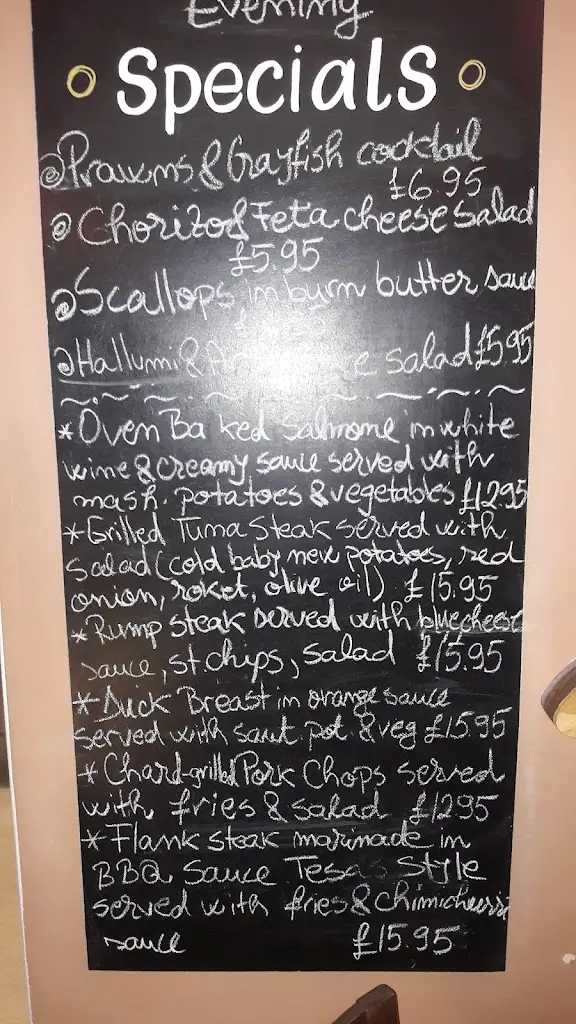 Evening
Specials
Prawns & Grayfish cocktail
£6.95
Chorizo & Feta cheese salad
£5.95
Scallops in burn butter sauce
Hallumi & salad £5.95
*Oven Ba ked Salmone in white
wine & creamy sauce served with
mash. potatoes & vegetables £12.95
*Grilled Tuma Steak served with
salad (cold baby new potatoes, red
onion, roket, olive oil) £15.95
*Rump steak served with bluecheese
sauce, st chips, salad £15.95
*Duck Breast in orange sauce
served with saut pot & veg £15.95
*Chard-grilled Pork Chops served
with fries & salad £12.95
*Flank steak marinade in
BBQ Sauce Tesas Style
served with fries & chimichurri
sauce £15.95